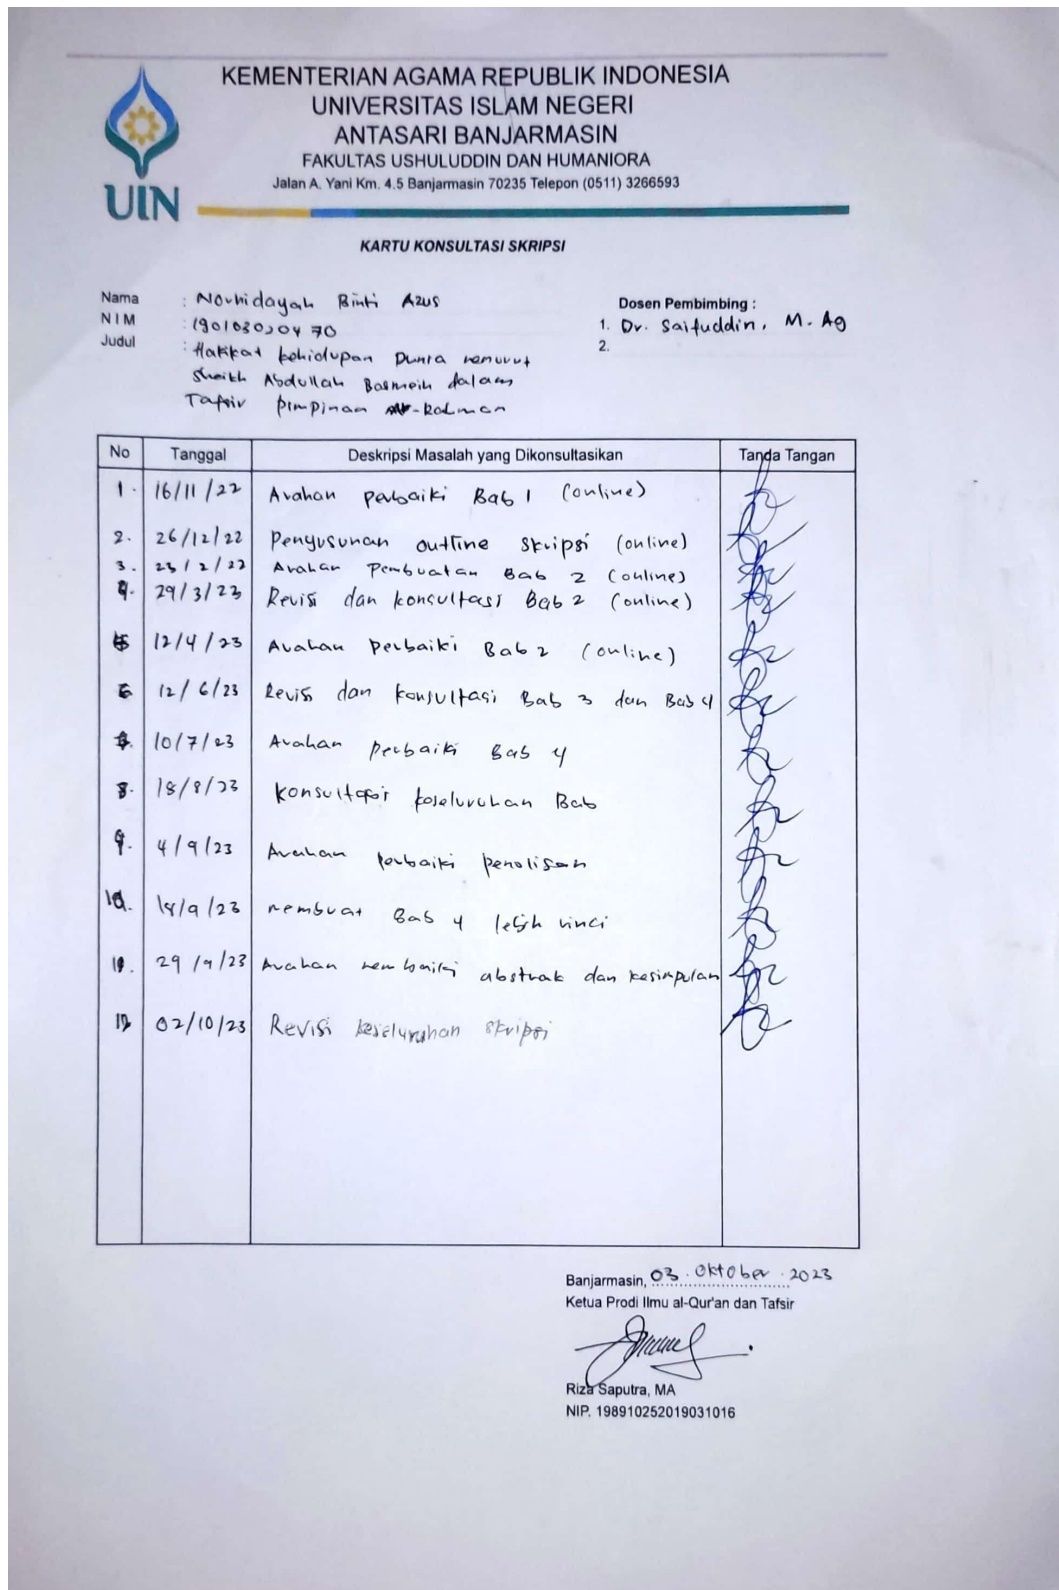 KEMENTERIAN AGAMA REPUBLIK INDONESIA
UNIVERSITAS ISLAM NEGERI
ANTASARI BANJARMASIN
FAKULTAS USHULUDDIN DAN HUMANIORA
Jalan A. Yani Km. 4.5 Banjarmasin 70235 Telepon (0511) 3266593
UIN
KARTU KONSULTASI SKRIPSI
Nama : Norhidayah Binti Azus
NIM : 190103020470
Judul : Hakikat kehidupan Dunia menurut
Sheikh Abdullah Basmeih dalam
Tafsir Pimpinan Ar-Rahman
Dosen Pembimbing :
1. Dr. Saifuddin, M. Ag
2.
No Tanggal Deskripsi Masalah yang Dikonsultasikan Tanda Tangan
1. 16/11/22 Arahan perbaiki Bab 1 (online)
2. 26/12/22 Penyusunan outline skripsi (online)
3. Arahan Pembuatan Bab 2 (online)
4. 29/3/23 Revisi dan konsultasi Bab 2 (online)
5 12/4/23 Arahan perbaiki Bab 2 (online)
6 12/6/23 Revisi dan konsultasi Bab 3 dan Bab 4
7. 10/7/23 Arahan perbaiki Bab 4
8. 18/8/23 Konsultasi keseluruhan Bab
9. 4/9/23 Arahan perbaiki penolisan
10. 18/9/23 membuat Bab 4 lebih rinci
11. 29/9/23 Arahan membaiki abstrak dan kesimpulan
12 02/10/23 Revisi keseluruhan skripsi
Banjarmasin, 03. Oktober. 2023
Ketua Prodi Ilmu al-Qur'an dan Tafsir
Riza Saputra, MA
NIP. 198910252019031016